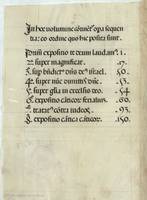 In hoc volumine continet opa sequen
tia: eo ordine quo hic posita sunt.
Primo expositio te deum laudamus. 1.
2. super magnificat. 17.
3. sup bndict' dns de' israel. 30.
4. super nuc dimittis dne. 53.
5. super glia in excelsis deo. 54
6. expositio cantico feriatus. 60.
7. tractat' cotra iudeos. 93.
8. expositio cantica canticor. 150.